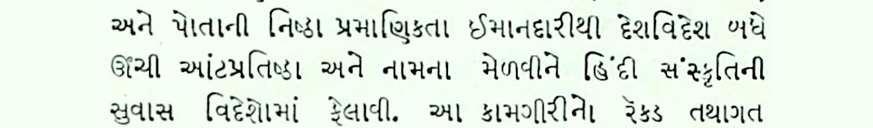 અને પોતાની નિષ્ઠા પ્રમાણિકતા ઈમાનદારીથી દેશવિદેશ બધે
ઊંચી આંટપ્રતિષ્ઠા અને નામના મેળવીને હિંદી સંસ્કૃતિની
સુવાસ વિદેશોમાં ફેલાવી. આ કામગીરીનો રેકડ તથાગત